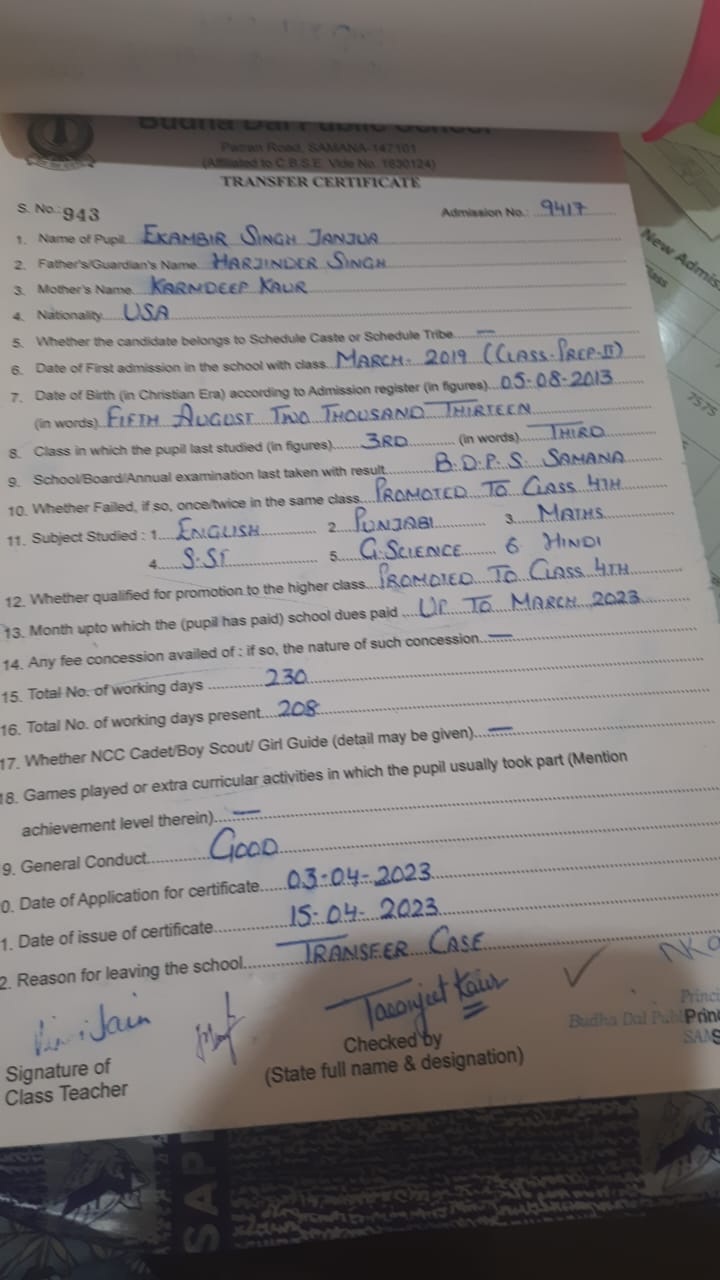 Budha Dal Public School
Patran Road, SAMANA-147101
(Affiliated to C.B.S.E. Vide No. 1630124)
TRANSFER CERTIFICATE
S. No.: 943 Admission No.: 9417
1. Name of Pupil EKAMBIR SINGH JANJUA
2. Father's/Guardian's Name HARJINDER SINGH
3. Mother's Name KARMDEEP KAUR
4. Nationality USA
5. Whether the candidate belongs to Schedule Caste or Schedule Tribe —
6. Date of First admission in the school with class MARCH- 2019 (CLASS-PREP-II)
7. Date of Birth (in Christian Era) according to Admission register (in figures) 05-08-2013
(in words) FIFTH AUGUST TWO THOUSAND THIRTEEN
8. Class in which the pupil last studied (in figures) 3RD (in words) THIRD
9. School/Board/Annual examination last taken with result B.D.P.S. SAMANA
10. Whether Failed, if so, once/twice in the same class PROMOTED TO CLASS 4TH
11. Subject Studied : 1. ENGLISH 2. PUNJABI 3. MATHS
4. S.ST 5. G.SCIENCE 6 HINDI
12. Whether qualified for promotion to the higher class PROMOTED TO CLASS 4TH
13. Month upto which the (pupil has paid) school dues paid UP TO MARCH 2023
14. Any fee concession availed of : if so, the nature of such concession —
15. Total No. of working days 230
16. Total No. of working days present 208
17. Whether NCC Cadet/Boy Scout/ Girl Guide (detail may be given) —
18. Games played or extra curricular activities in which the pupil usually took part (Mention
achievement level therein) —
9. General Conduct GOOD
0. Date of Application for certificate 03-04-2023
1. Date of issue of certificate 15-04-2023
2. Reason for leaving the school TRANSFER CASE
Jain Taranjeet Kaur
Signature of
Class Teacher
Checked by
(State full name & designation)
Princi
Budha Dal Publ Prin
SAM
New Admiss
lass
7575
SAP